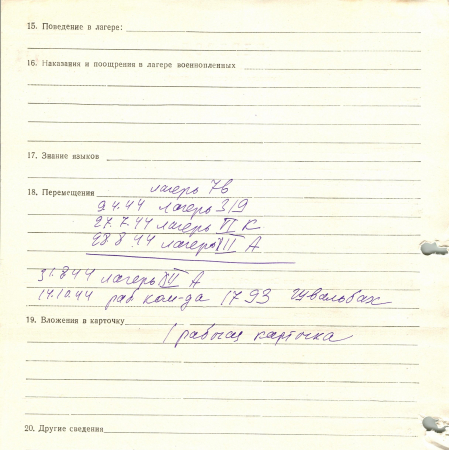 15. Поведение в лагере:
16. Наказания и поощрения в лагере военнопленных
17. Знание языков
18. Перемещения лагерь 7в
9.4.44 лагерь 319
27.7.44 лагерь VI K
28.8.44 лагерь III A
31.8.44 лагерь IV A
14.10.44 раб ком-да 1793 Цвальбах
19. Вложения в карточку
1 рабочая карточка
20. Другие сведения